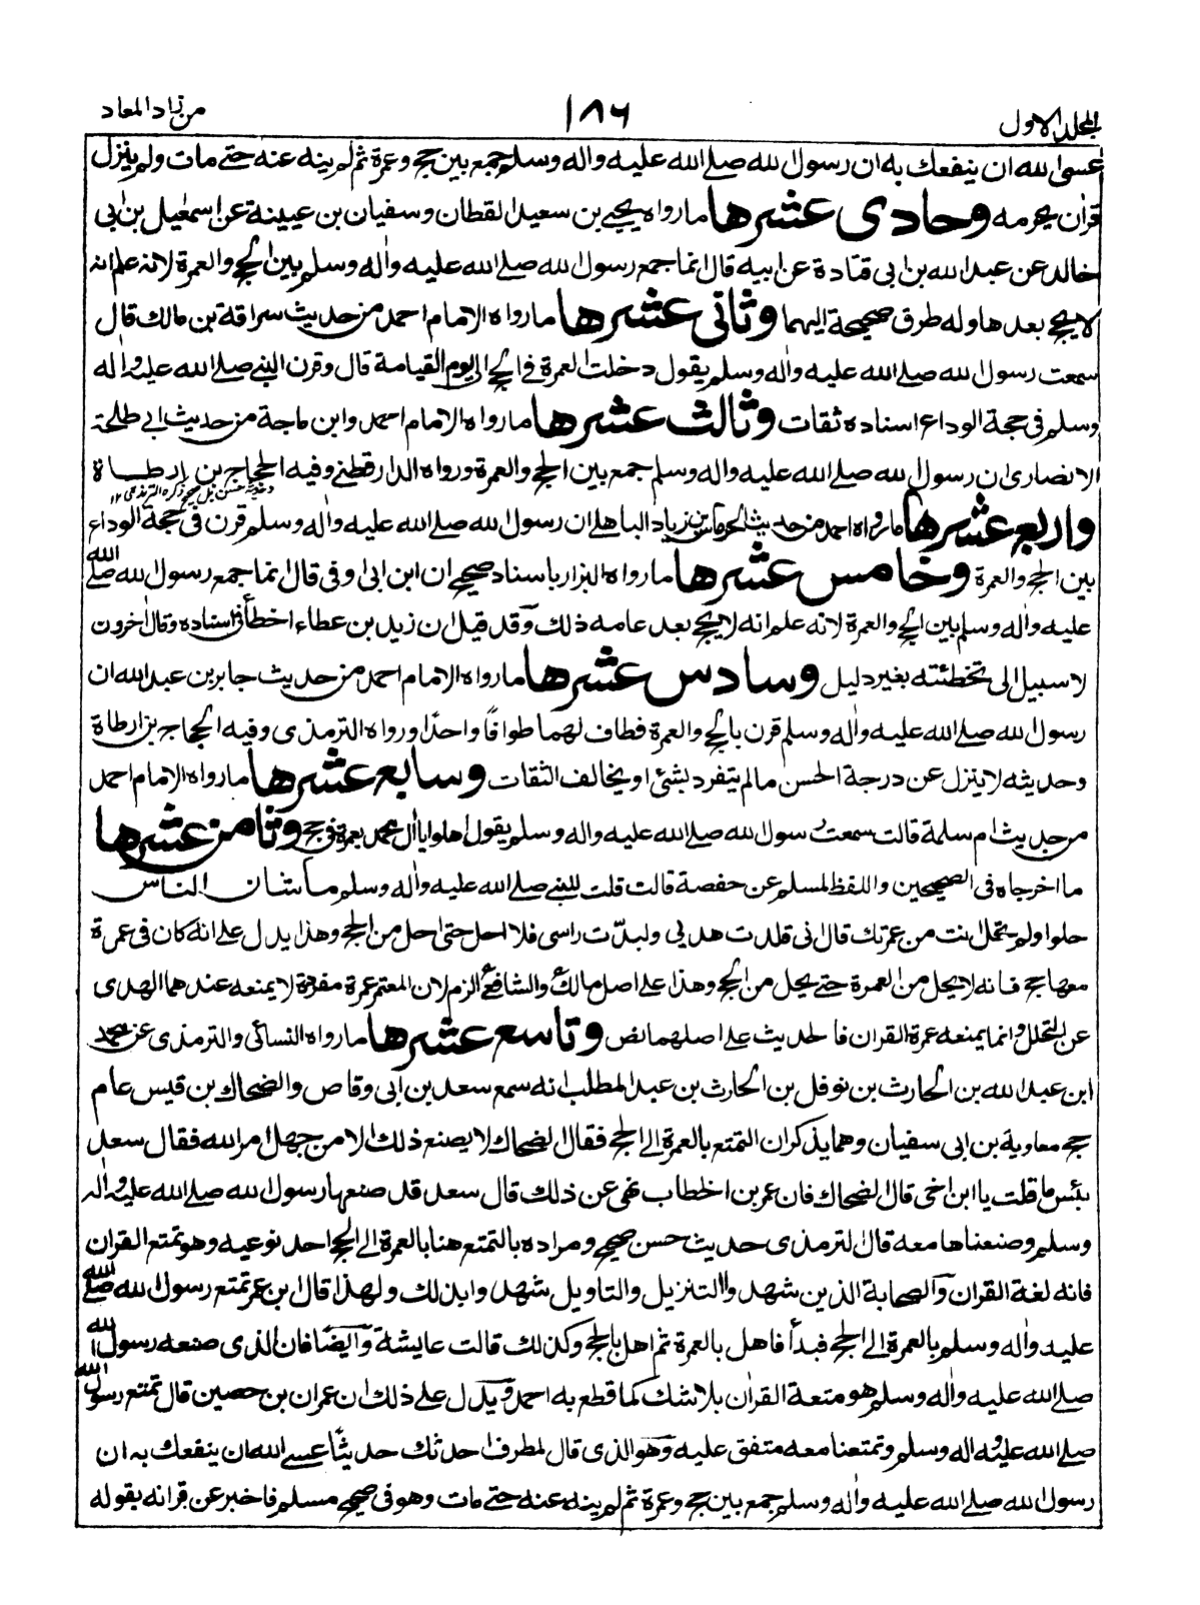 المجلد الاول
١٨٦
من زاد المعاد
عسى الله ان ينفعك به ان رسول الله صلى الله عليه واله وسلم جمع بين حج وعمرة ثم لم ينه عنه حتى مات ولم ينزل
قرآن يحرمه وحادى عشرها ما رواه يحيى بن سعيد القطان وسفيان بن عيينة عن اسمعيل بن ابى
خالد عن عبد الله بن ابى قتادة عن ابيه قال انما جمع رسول الله صلى الله عليه وآله وسلم بين الحج والعمرة لانه علم انه
لا يحج بعدها وله طرق صحيحة اليهما وثانى عشرها ما رواه الامام احمد من حديث سراقة بن مالك قال
سمعت رسول الله صلى الله عليه وآله وسلم يقول دخلت العمرة فى الحج الى يوم القيامة قال وقرن النبى صلى الله عليه وآله
وسلم فى حجة الوداع اسناده ثقات وثالث عشرها ما رواه الامام احمد وابن ماجة من حديث ابى طلحة
الانصارى ان رسول الله صلى الله عليه واله وسلم جمع بين الحج والعمرة ورواه الدارقطنى وفيه الحجاج بن ارطاة
وحديثه حسن بل صحيح ذكره الترمذى ١٢
واربع عشرها ما رواه احمد من حديث الهرماس بن زياد الباهلى ان رسول الله صلى الله عليه وآله وسلم قرن فى حجة الوداع
بين الحج والعمرة وخامس عشرها ما رواه البزار باسناد صحيح ان ابن ابى اوفى قال انما جمع رسول الله صلى الله
عليه وآله وسلم بين الحج والعمرة لانه علم انه لا يحج بعد عامه ذلك وقد قيل ان زيد بن عطاء اخطأ فى اسناده وقال آخرون
لا سبيل الى تخطئته بغير دليل وسادس عشرها ما رواه الامام احمد من حديث جابر بن عبد الله ان
رسول الله صلى الله عليه وآله وسلم قرن بالحج والعمرة فطاف لهما طوافا واحدا ورواه الترمذى وفيه الحجاج بن ارطاة
وحديثه لا ينزل عن درجة الحسن ما لم يتفرد بشئ او يخالف الثقات وسابع عشرها ما رواه الامام احمد
من حديث ام سلمة قالت سمعت رسول الله صلى الله عليه واله وسلم يقول اهلوا يا آل محمد بعمرة فى حج وثامن عشرها
ما اخرجاه فى الصحيحين واللفظ لمسلم عن حفصة قالت قلت للنبى صلى الله عليه وآله وسلم ما شان الناس
حلوا ولم تحل انت من عمرتك قال انى قلدت هديى ولبدت راسى فلا احل حتى احل من الحج وهذا يدل على انه كان فى عمرة
معها حج فانه لا يحل من العمرة حتى يحل من الحج وهذا على اصل مالك والشافعى الزم لان المعتمر عمرة مفردة لا يمنعه عندهما الهدى
عن التحلل وانما يمنعه عمرة القران فالحديث على اصلهما نص وتاسع عشرها ما رواه النسائى والترمذى عن محمد
ابن عبد الله بن الحارث بن نوفل بن الحارث بن عبد المطلب انه سمع سعد بن ابى وقاص والضحاك بن قيس عام
حج معاوية بن ابى سفيان وهما يذكران التمتع بالعمرة الى الحج فقال الضحاك لا يصنع ذلك الا من جهل امر الله فقال سعد
بئس ما قلت يا ابن اخى قال الضحاك فان عمر بن الخطاب نهى عن ذلك قال سعد قد صنعها رسول الله صلى الله عليه وآله
وسلم وصنعناها معه قال الترمذى حديث حسن صحيح ومراده بالتمتع هنا بالعمرة الى الحج احد نوعيه وهو تمتع القران
فانه لغة القران والصحابة الذين شهدوا التنزيل والتاويل شهدوا بذلك ولهذا قال ابن عمر تمتع رسول الله صلى الله
عليه وآله وسلم بالعمرة الى الحج فبدأ فاهل بالعمرة ثم اهل بالحج وكذلك قالت عايشة وايضا فان الذى صنعه رسول الله
صلى الله عليه وآله وسلم هو متعة القران بلا شك كما قطع به احمد ويدل على ذلك ان عمران بن حصين قال تمتع رسول الله
صلى الله عليه وآله وسلم وتمتعنا معه متفق عليه وهو الذى قال لمطرف احدثك حديثا عسى الله ان ينفعك به ان
رسول الله صلى الله عليه وآله وسلم جمع بين حج وعمرة ثم لم ينه عنه حتى مات وهو فى صحيح مسلم فاخبر عن قرانه بقوله